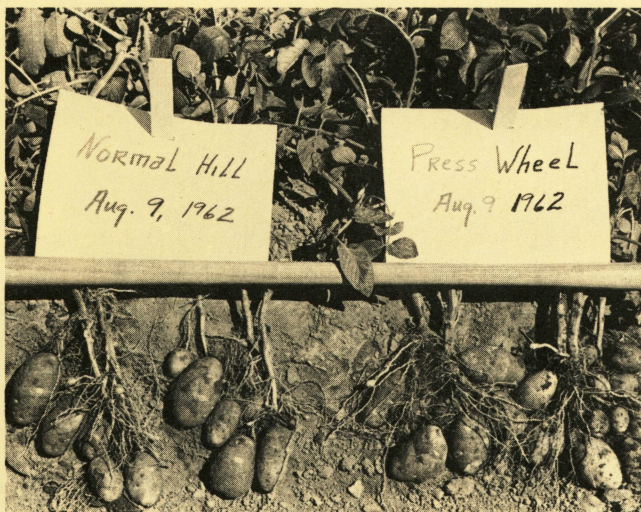 Normal Hill
Aug. 9, 1962
Press Wheel
Aug. 9 1962